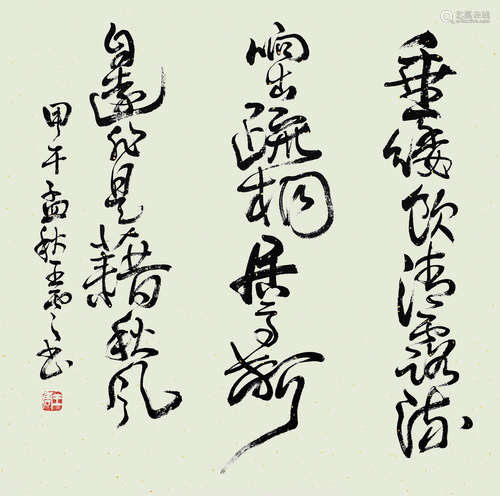 垂緌飲清露流
响出疏桐居高聲
自遠非是藉秋风
甲午孟秋王之书